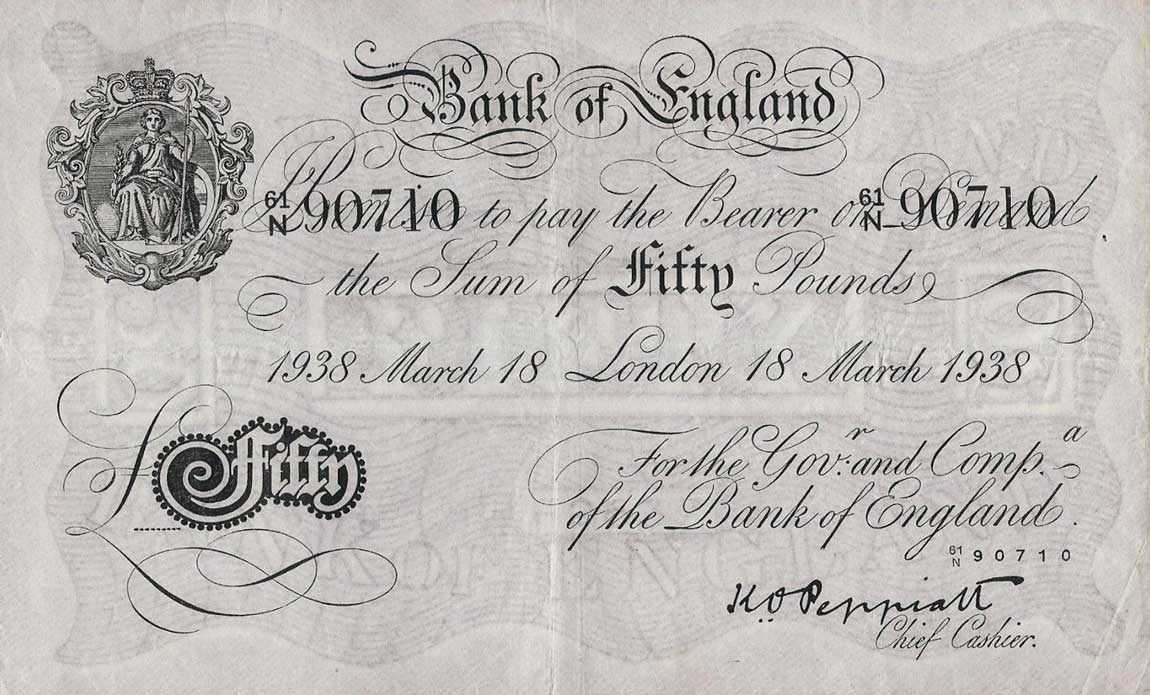 Bank of England
61/N 90710 Promise to pay the Bearer on Demand 61/N 90710
the Sum of Fifty Pounds
1938 March 18 London 18 March 1938
£ Fifty
For the Gov.r and Comp.a
of the Bank of England.
61/N 90710
K.O. Peppiatt
Chief Cashier.